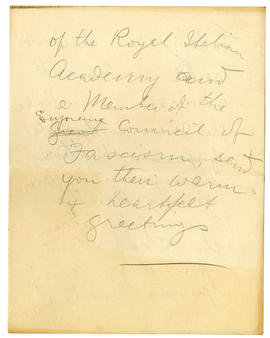 of the Royal Italian
Academy and
a Member of the
Supreme
Great Council of
Fascism, send
you their warm
& heartfelt
greetings